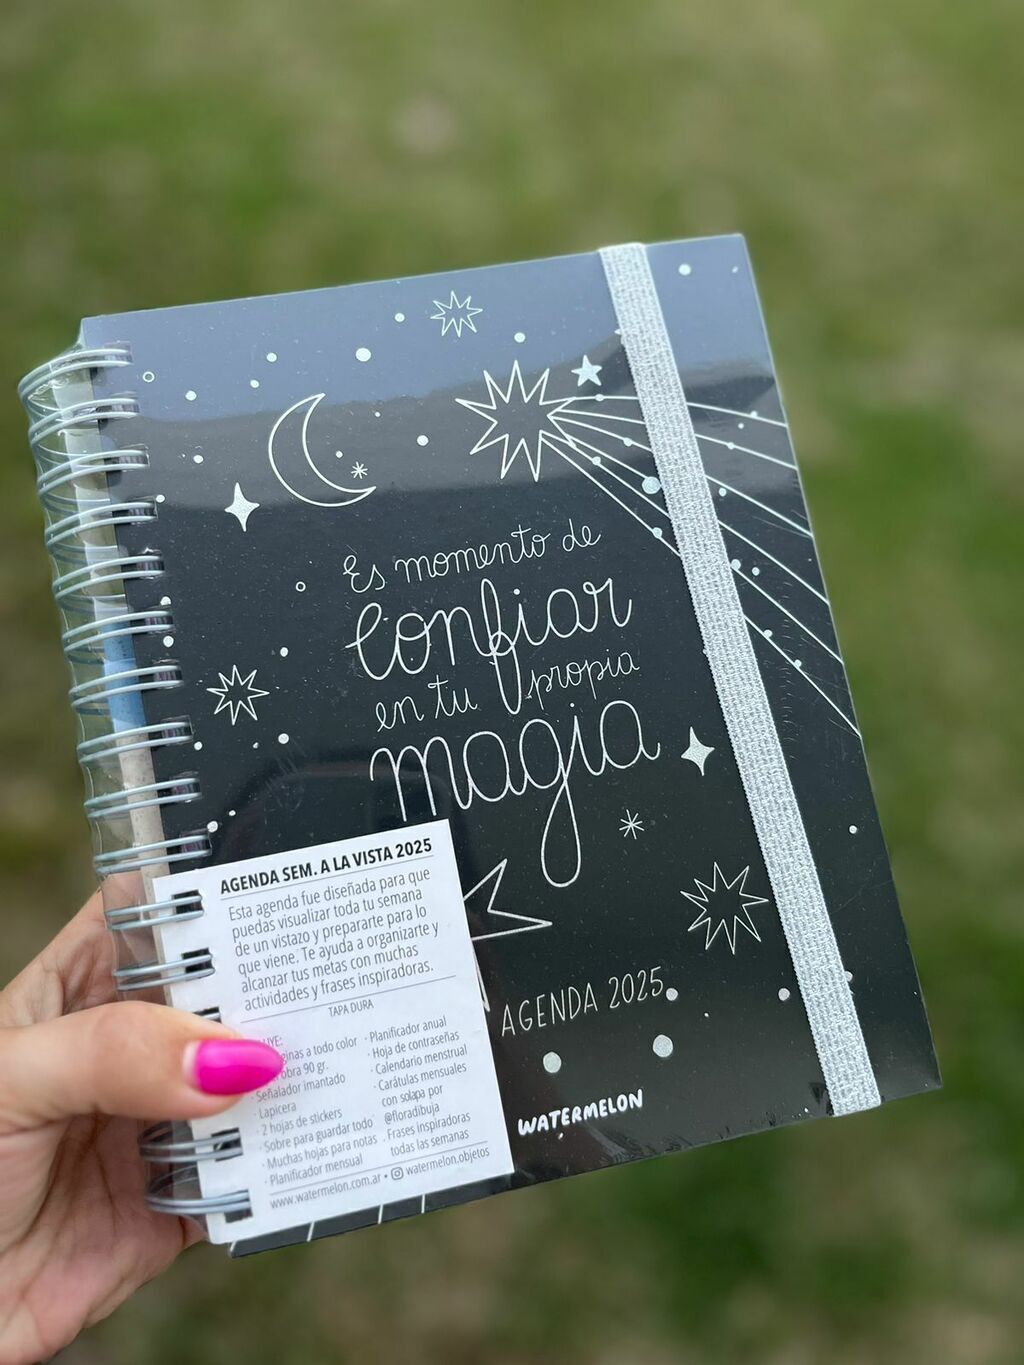 Es momento de
Confiar
en tu propia
magia
AGENDA 2025
WATERMELON
AGENDA SEM. A LA VISTA 2025
Esta agenda fue diseñada para que
puedas visualizar toda tu semana
de un vistazo y prepararte para lo
que viene. Te ayuda a organizarte y
alcanzar tus metas con muchas
actividades y frases inspiradoras.
TAPA DURA
a todo color
obra 90 gr.
· Señalador imantado
· Lapicera
· 2 hojas de stickers
· Sobre para guardar todo
· Muchas hojas para notas
· Planificador mensual
· Planificador anual
· Hoja de contraseñas
· Calendario mensual
· Carátulas mensuales
con solapa por
@floradibuja
· Frases inspiradoras
todas las semanas
www.watermelon.com.ar • watermelon.objetos